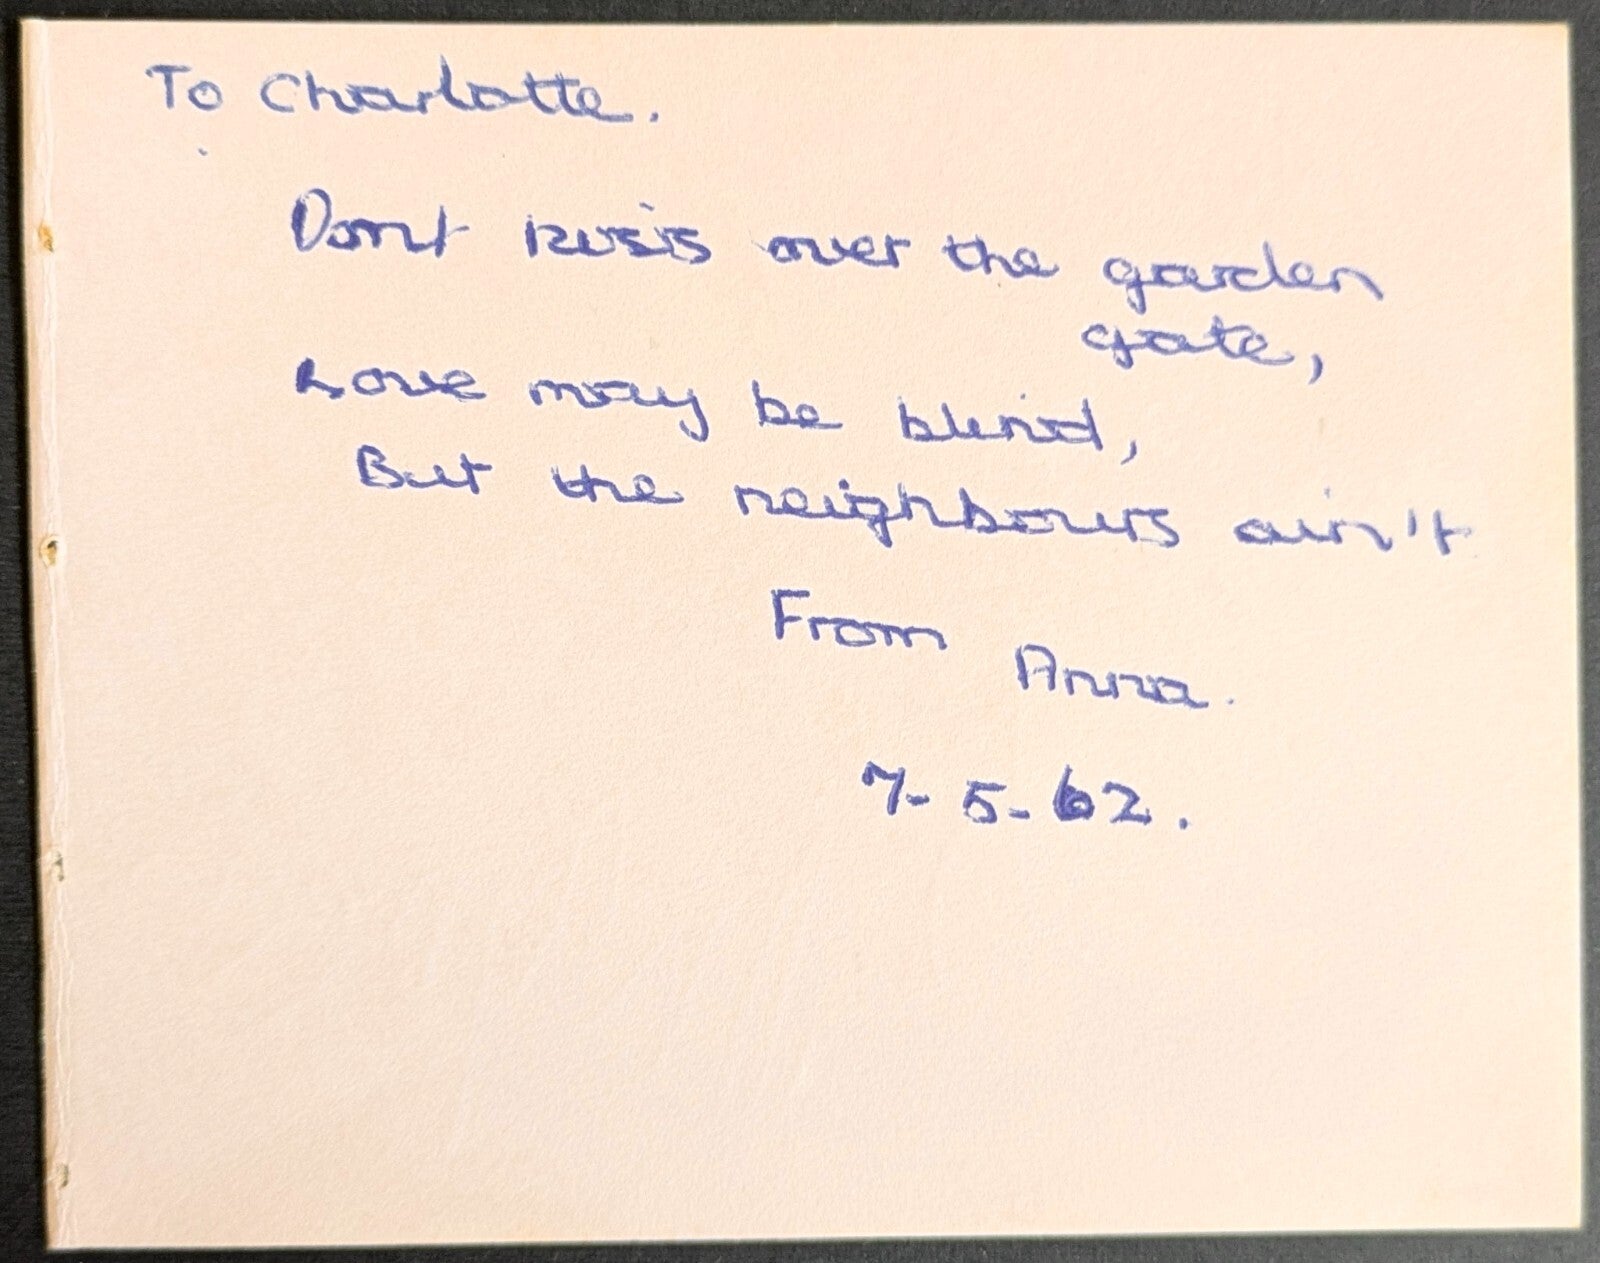 To Charlotte.
Dont kiss over the garden
gate,
Love may be blind,
But the neighbours ain't
From Anna.
7-5-62.